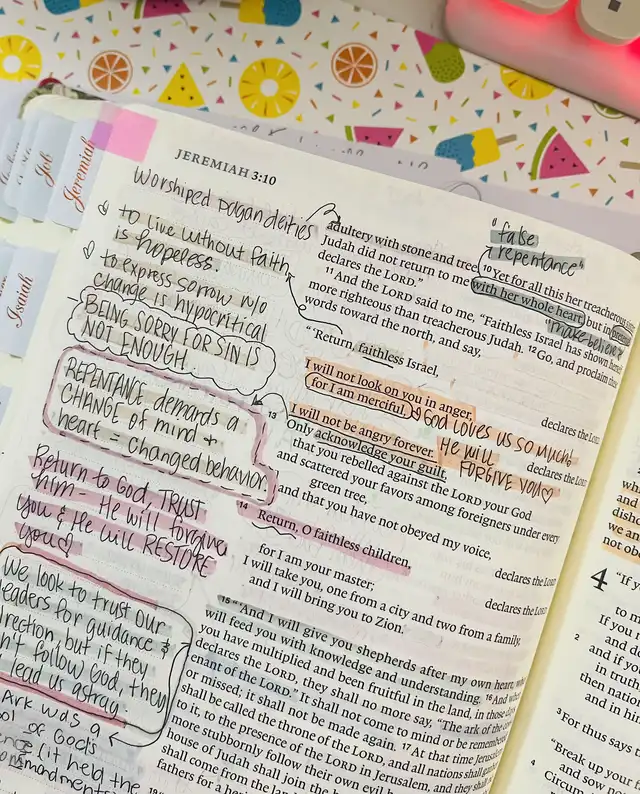 Job
Jeremiah
Isaiah
JEREMIAH 3:10
Worshiped pagan deities
to live without faith
is hopeless.
to express sorrow w/o
change is hypocritical
BEING SORRY FOR SIN IS
NOT ENOUGH.
REPENTANCE demands a
CHANGE OF mind +
heart = changed behavior
Return to God, TRUST
him - He will forgive
you & He will RESTORE
you
We look to trust our
leaders for guidance &
direction, but if they
don't follow God, they
lead us astray.
Ark was a
of God's
(it held the
"false
repentance"
"make believe"
adultery with stone and tree
10 Yet for all this her treacherous
Judah did not return to me with her whole heart, but in
declares the LORD."
11 And the LORD said to me, "Faithless Israel has shown
more righteous than treacherous Judah. 12 Go, and proclaim
words toward the north, and say,
"'Return, faithless Israel,
declares the LORD.
I will not look on you in anger,
for I am merciful,
God loves us so much!
He will
FORGIVE YOU
declares the LORD;
I will not be angry forever.
13 Only acknowledge your guilt,
that you rebelled against the LORD your God
and scattered your favors among foreigners under every
green tree,
and that you have not obeyed my voice,
declares the LORD.
14 Return, O faithless children,
declares the LORD;
for I am your master;
I will take you, one from a city and two from a family,
and I will bring you to Zion.
15 "'And I will give you shepherds after my own heart,
will feed you with knowledge and understanding. 16 And when
you have multiplied and been fruitful in the land, in those days,
declares the LORD, they shall no more say, "The ark of the
enant of the LORD." It shall not come to mind or be remembered
or missed; it shall not be made again. 17 At that time Jerusalem
shall be called the throne of the LORD, and all nations shall gather
to it, to the presence of the LORD in Jerusalem, and they shall
more stubbornly follow their own evil
house of Judah shall join the
shall come from the land
fathers for a
4
"If
to
If you
and
2 and if
in truth
then nation
and in hi
3 For thus says
"Break up your
and sow no
4 Circum